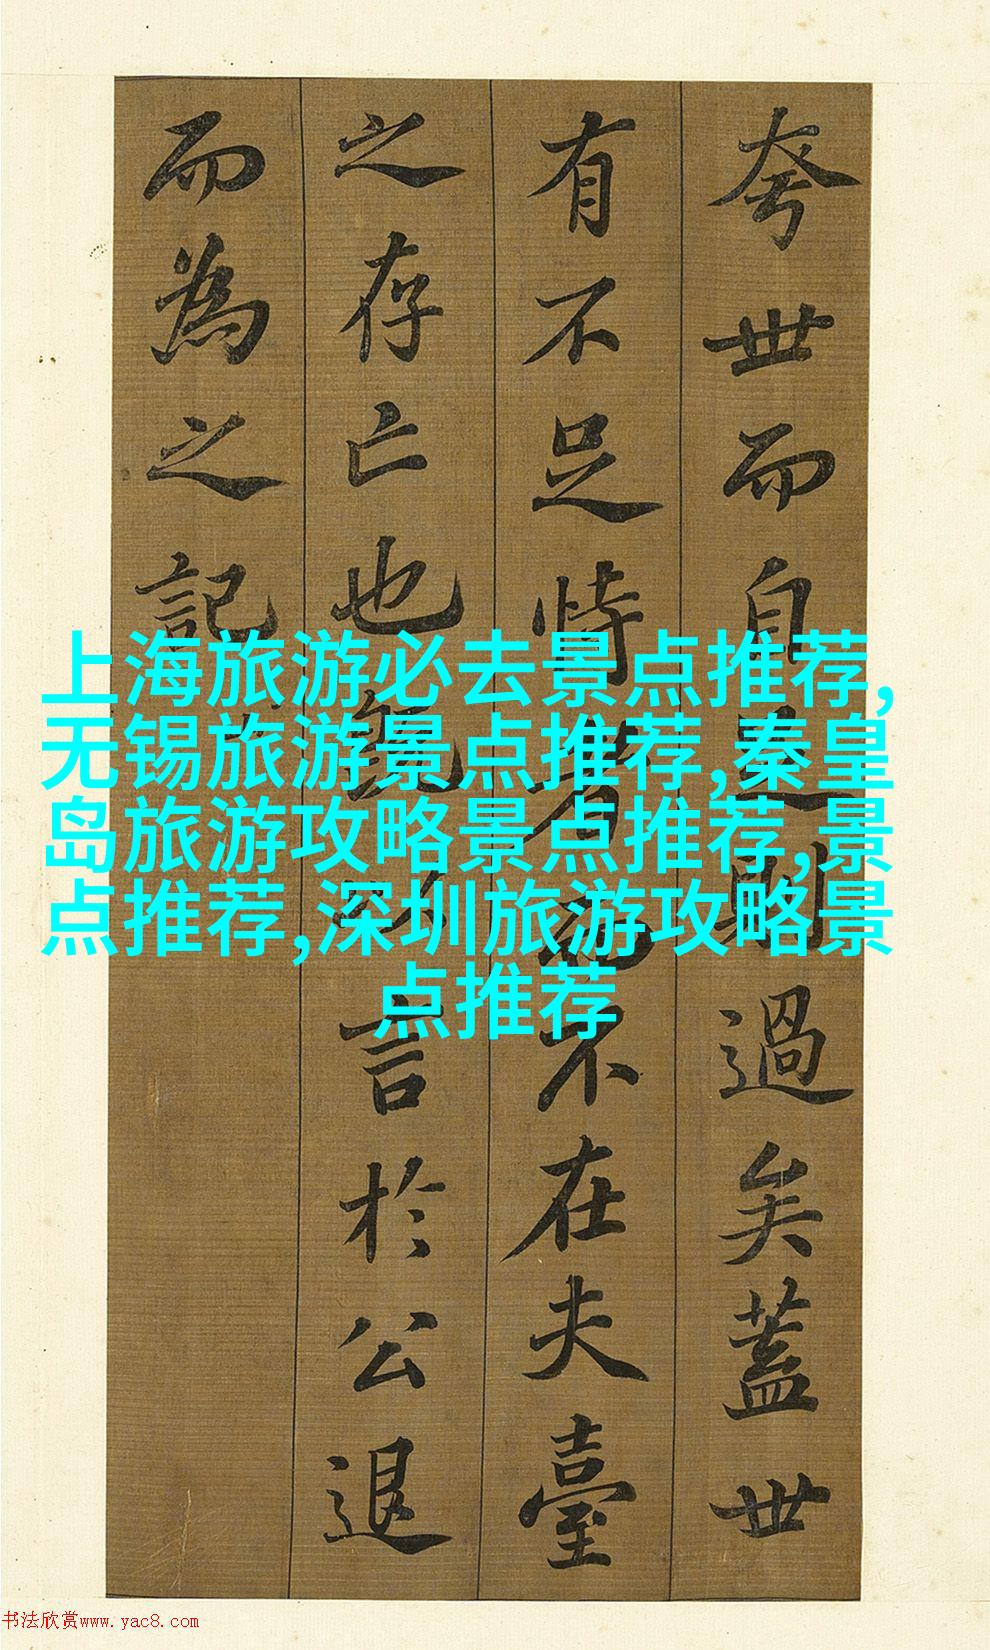 夸世而自足則過矣蓋世
有不足恃者不在夫臺
之存亡也既以言於公退
而為之記
上海旅游必去景点推荐,
无锡旅游景点推荐,秦皇
岛旅游攻略景点推荐,景
点推荐,深圳旅游攻略景
点推荐
书法欣赏www.yac8.com